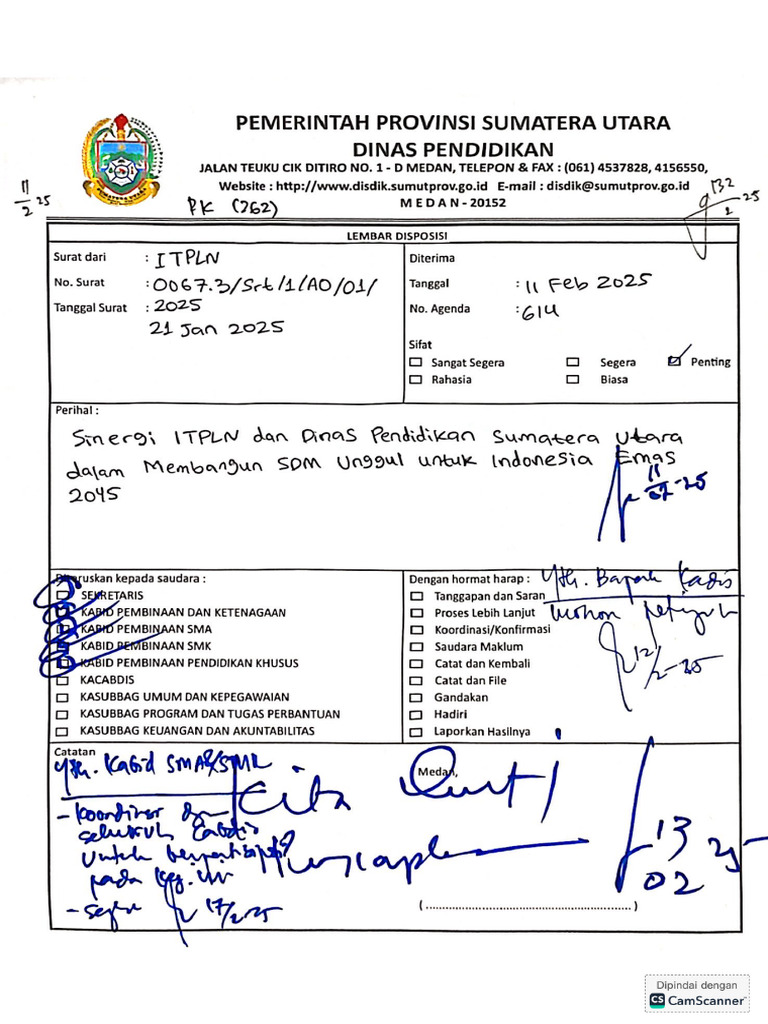 PEMERINTAH PROVINSI SUMATERA UTARA
DINAS PENDIDIKAN
JALAN TEUKU CIK DITIRO NO. 1 - D MEDAN, TELEPON & FAX : (061) 4537828, 4156550,
Website : http://www.disdik.sumutprov.go.id E-mail : disdik@sumutprov.go.id
MEDAN - 20152
11/2 25
PK (762)
LEMBAR DISPOSISI
Surat dari : ITPLN
No. Surat : 0067.3/Srt/1/A0/01/
2025
Tanggal Surat :
21 Jan 2025
Diterima
Tanggal : 11 Feb 2025
No. Agenda : 614
Sifat
Sangat Segera Segera Penting
Rahasia Biasa
Perihal :
Sinergi ITPLN dan Dinas Pendidikan Sumatera Utara
dalam Membangun SDM Unggul untuk Indonesia Emas
2045
11/02-25
Diteruskan kepada saudara :
SEKRETARIS
KABID PEMBINAAN DAN KETENAGAAN
KABID PEMBINAAN SMA
KABID PEMBINAAN SMK
KABID PEMBINAAN PENDIDIKAN KHUSUS
KACABDIS
KASUBBAG UMUM DAN KEPEGAWAIAN
KASUBBAG PROGRAM DAN TUGAS PERBANTUAN
KASUBBAG KEUANGAN DAN AKUNTABILITAS
Dengan hormat harap :
Tanggapan dan Saran
Proses Lebih Lanjut
Koordinasi/Konfirmasi
Saudara Maklum
Catat dan Kembali
Catat dan File
Gandakan
Hadiri
Laporkan Hasilnya
Yth. Bapak Kadis
mohon petunjuk
12/2-25
Catatan
Yth. Kabid SMA/SMK
- koordinasi dgn
seluruh Cabdis
untuk berpartisipasi
pada keg. ini
- segera
17/2-25
Medan,
Kita
13
02 25
(............................................................)
Dipindai dengan
CS CamScanner